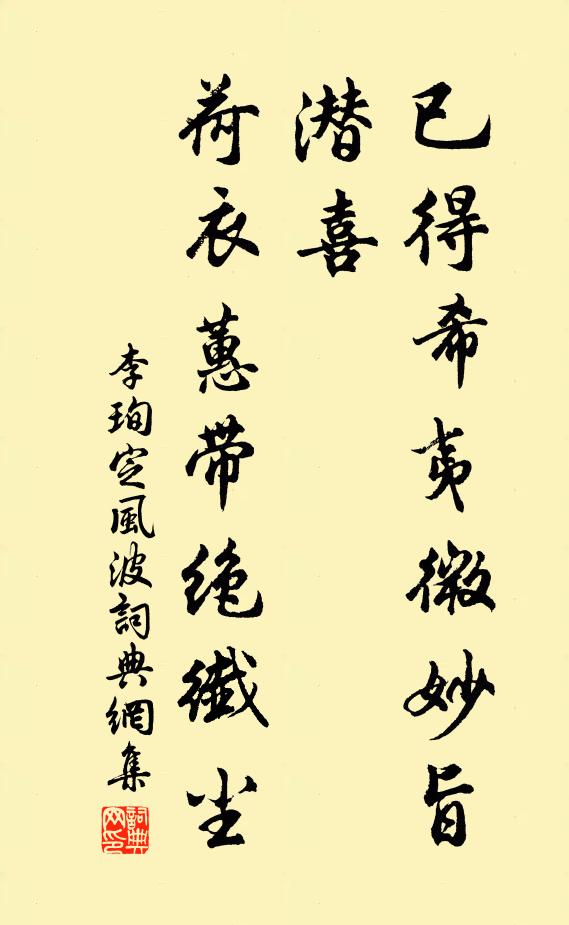 已得希夷微妙旨
潜喜
荷衣蕙带绝纖尘
李珣定風波詞典網集
詞典网印